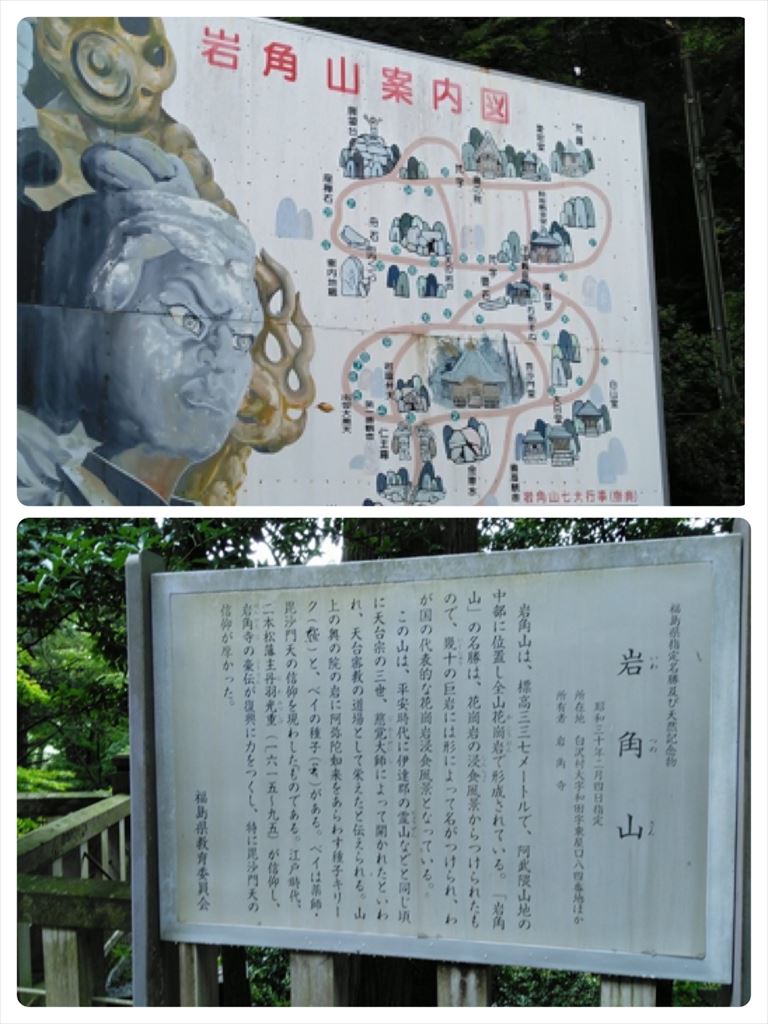 岩角山案内図
展望台
座禅石
舟石
胎内くぐり
案内地蔵
養蚕堂
毘沙門堂
白山堂
仁王尊
金華水
岩角山七大行事(祭典)
福島県指定名勝及び天然記念物
岩角山
いわ つの さん
昭和三十年二月四日指定
所在地 白沢村大字和田字東屋口八四番地ほか
所有者 岩角寺
岩角山は、標高三三七メートルで、阿武隈山地の
中部に位置し全山花崗岩で形成されている。「岩角
山」の名勝は、花崗岩の浸食風景からつけられたも
ので、幾十の巨岩には形によって名がつけられ、わ
が国の代表的な花崗岩浸食風景となっている。
この山は、平安時代に伊達郡の霊山などと同じ頃
に天台宗の三世、慈覚大師によって開かれたといわ
れ、天台密教の道場として栄えたと伝えられる。山
上の奥の院の岩に阿弥陀如来をあらわす種子キリー
ク()と、ベイの種子()がある。ベイは薬師・
毘沙門天の信仰を現わしたものである。江戸時代、
二本松藩主丹羽光重(一六一五~九五)が信仰し、
岩角寺の豪伝が復興に力をつくし、特に毘沙門天の
信仰が厚かった。
福島県教育委員会